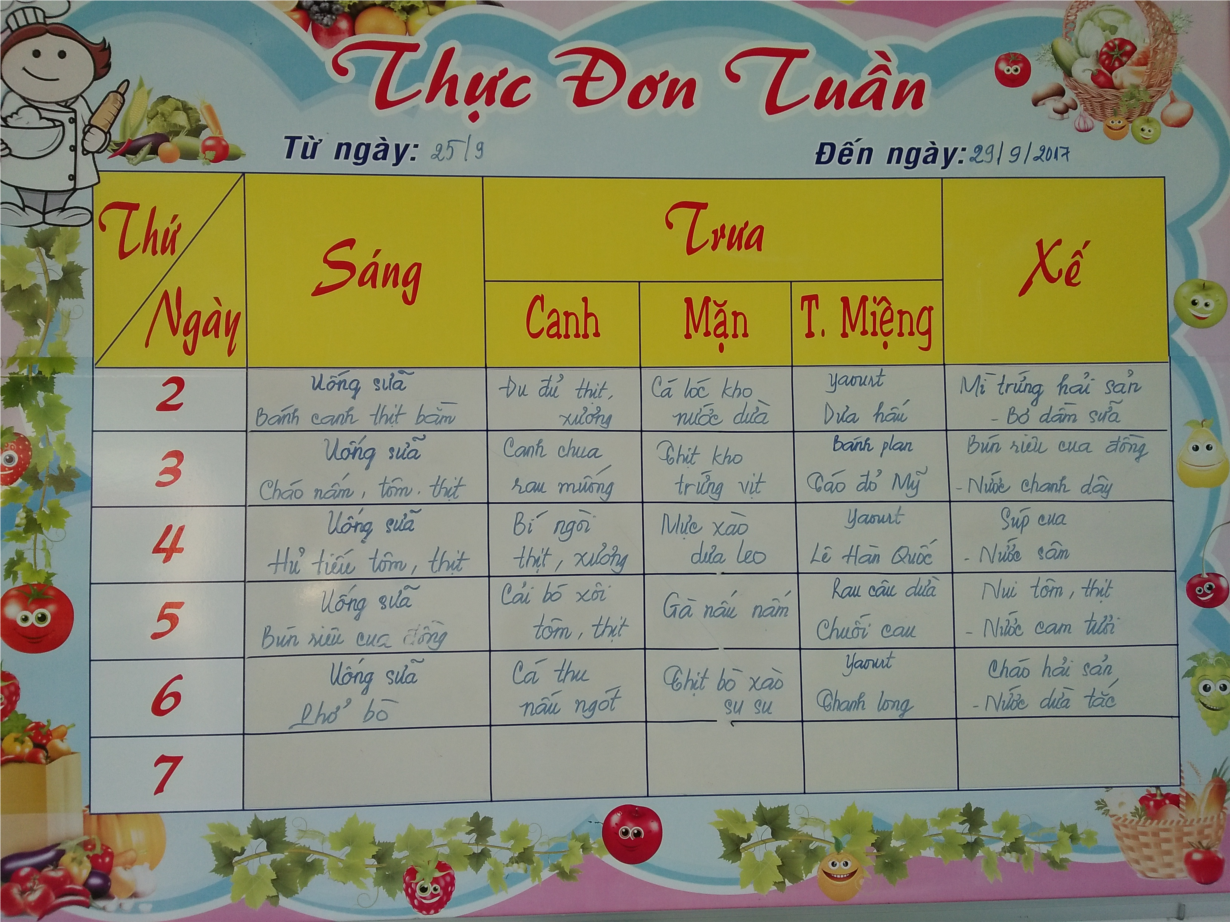 Thực Đơn Tuần
Từ ngày: 25/9 Đến ngày: 29/9/2017
Thứ Ngày
Sáng
Trưa
Xế
Canh
Mặn
T. Miệng
2
Uống sữa
Bánh canh thịt bằm
Đu đủ thịt,
xương
Cá lóc kho
nước dừa
Yaourt
Dưa hấu
Mì trứng hải sản
- Bơ dầm sữa
3
Uống sữa
Cháo nấm, tôm. thịt
Canh chua
rau muống
Thịt kho
trứng vịt
Bánh plan
Táo đỏ Mỹ
Bún riêu cua đồng
- Nước chanh dây
4
Uống sữa
Hủ tiếu tôm, thịt
Bí ngòi
thịt, xương
Mực xào
dưa leo
Yaourt
Lê Hàn Quốc
Súp cua
- Nước sâm
5
Uống sữa
Bún riêu cua đồng
Cải bó xôi
tôm, thịt
Gà nấu nấm
Rau câu dừa
Chuối cau
Nui tôm, thịt
- Nước cam tươi
6
Uống sữa
Phở bò
Cá thu
nấu ngót
Thịt bò xào
su su
Yaourt
Thanh long
Cháo hải sản
- Nước dừa tắc
7